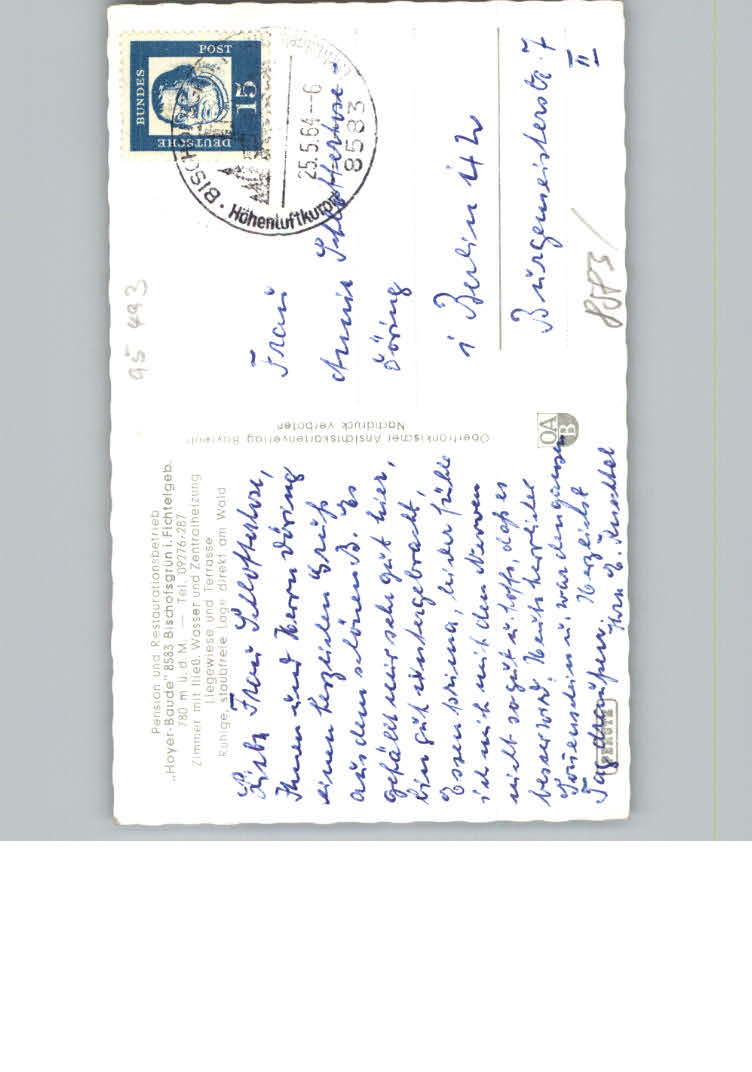 Pension und Restaurationsbetrieb
„Hoyer-Baude" 8583 Bischofsgrün i. Fichtelgeb.
780 m ü. d. M. — Tel. 09276/287
Zimmer mit fließ. Wasser und Zentralheizung
Liegewiese und Terrasse
Ruhige, staubfreie Lage direkt am Wald
Liebe Frau Schlotterhose,
Ihnen und Herrn Döring
einen herzlichen Gruß
aus dem schönen B. Es
gefällt mir sehr gut hier,
bin gut untergebracht,
Essen prima, leider fühle
ich mich mit den Nerven
nicht so gut u. hoffe, daß es
besser wird. Heute herrlicher
Sonnenschein u. war den ganzen
Tag draußen. Herzlichst
Ihre
PERUTZ
Oberfränkischer Ansichtskartenverlag Bayreuth
Nachdruck verboten
OA
B
95 493
DEUTSCHE
BUNDES
POST
15
BISCHO
25.5.64--6
8583
Höhenluftkurort
Frau
Annie Schlotterhose-
Döring
1 Berlin 42
Bürgemeisterstr. 7
II
8583/